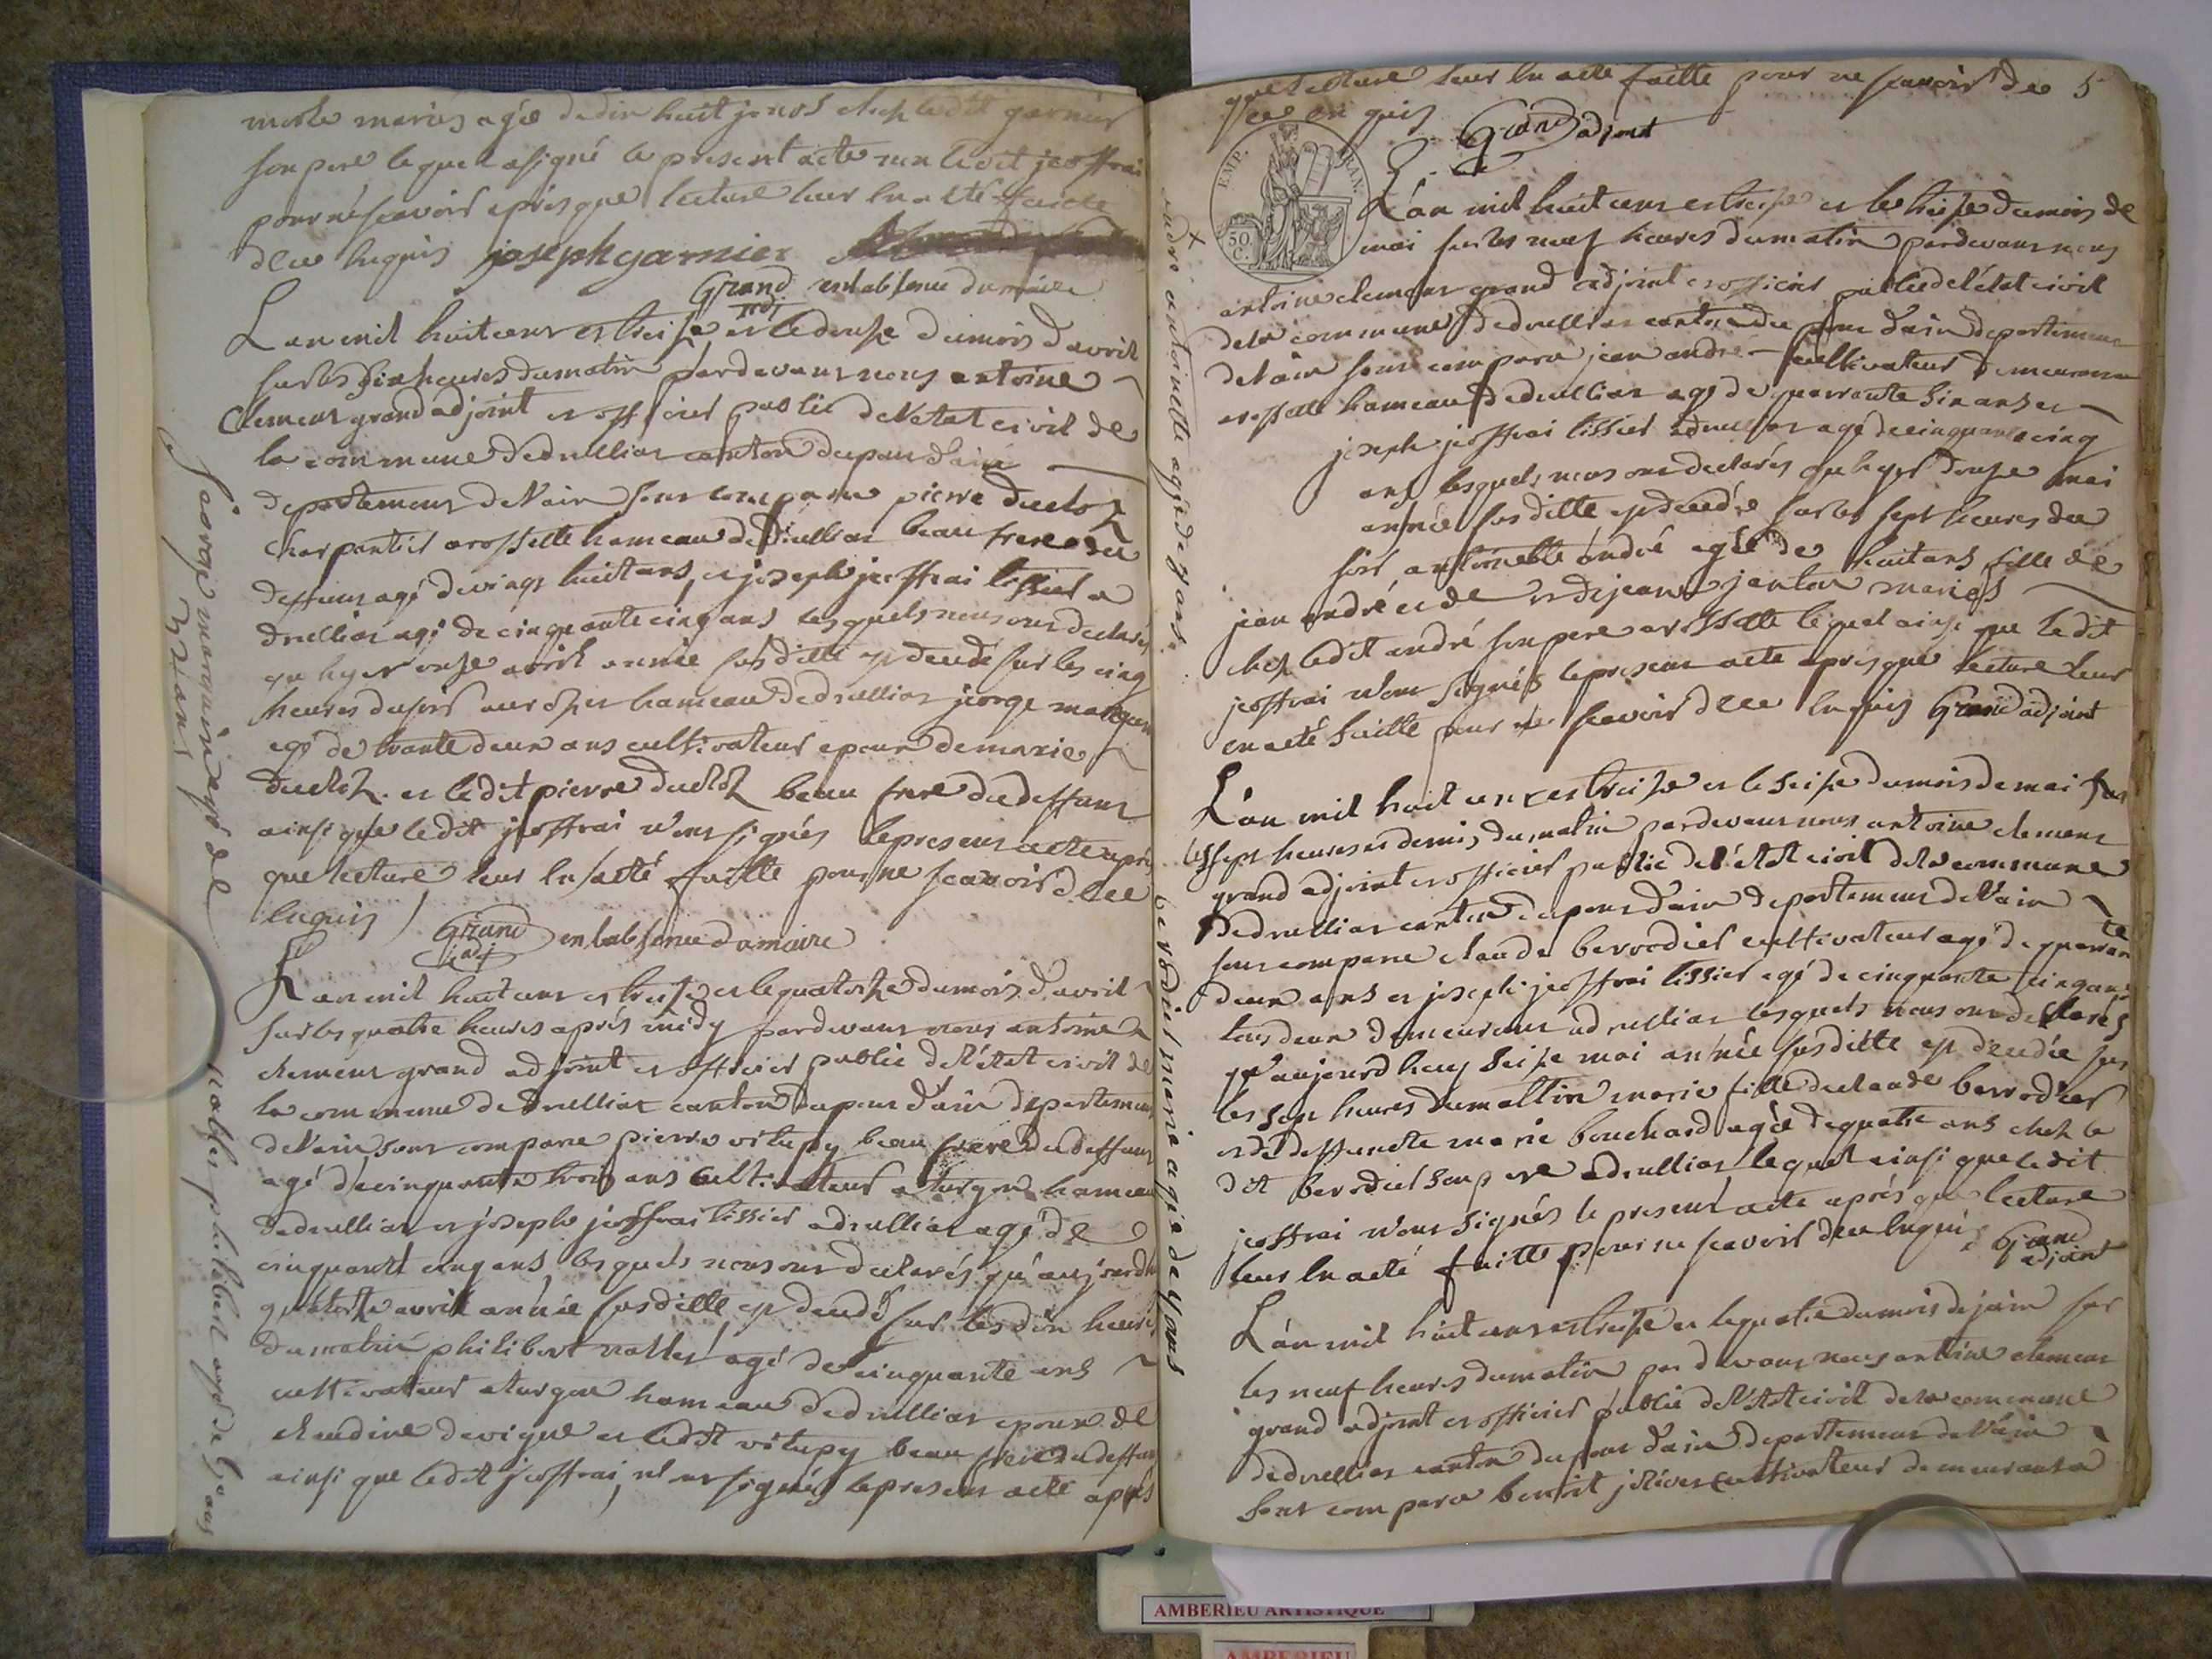 morte mariés agée de dix huit jours chez ledit garnier
son pere lequel a signé le present acte non ledit jeoffrai
pour ne scavoir après que lecture leur en a été faicte
de ce enquis joseph garnier
Grand adj. en l'absence du maire
L'an mil huit cens et treise et le douse du mois d'avril
sur les dix heures du matin pardevant nous antoine
Clemens grand adjoint et officier public de l'etat civil de
la commune de druillias canton du pon d'ain
departement de l'ain sont comparu pierre
charpantier a rossette hameau de druillias beau frere du
deffunt agé de vingt huit ans, et joseph jeoffrai tissier a
druillias agé de cinquante cinq ans lesquels nous ont declarés
qu'hyer onse avril année susditte est decedé sur les cinq
heures du soir hameau de druillias jorge
agé de trante deux ans cultivateur epoux de marie
et ledit pierre beau frere du deffunt
ainsi que ledit jeoffrai n'ont signés le present acte après
que lecture leur en a eté faitte pour ne scavoir de ce
enquis
Grand adj en l'absence du maire
L'an mil huit cens et treise et le quatorze du mois d'avril
sur les quatre heures après midy pardevant nous antoine
clemens grand adjoint et officier public de l'état civil de
la commune de druillias canton du pon d'ain departement
de l'ain sont comparu pierre vitupy beau frere du deffunt
agé de cinquante trois ans cultivateur a turgon hameau
de druillias et joseph jeoffrai tissier a druillias agé de
cinquante cinq ans, lesquels nous ont declarés qu'aujourd'hui
quatorze avril année susditte est decedé sur les dix heures
du matin philibert agé de cinquante ans
cultivateur a turgon hameau de druillias epoux de
claudine devigne et ledit vitupy beau frere du deffunt
ainsi que ledit jeoffrai, n'ont signés le present acte après
agé de
32 ans
philibert agé de 50 ans
que lecture leur en a eté faitte pour ne scavoir de 5
ce enquis
Grand adjoint
EMP. FRAN.
50 C.
L'an mil huit cens et treise et le treise du mois de
mai sur les neuf heures du matin pardevant nous
antoine clemens grand adjoint et officier public de l'état civil
de la commune de druillias canton du pon d'ain departement
de l'ain sont comparu jean andré cultivateur demeurant
a rossette hameau de druillias agé de quarante six ans et
joseph jeoffrai tissier a druillias agé de cinquante cinq
ans lesquels nous ont declarés qu'hyer douse mai
année susditte est decedée sur les sept heures du
soir antoinette andré agée de huit ans fille de
jean andré et de et de jeanne mariés
chez ledit andré son pere a rossette lequel ainsi que ledit
jeoffrai n'ont signés le present acte apres que lecture leur
en a eté faitte pour ne scavoir de ce enquis Grand adjoint
andré antoinette agée de 8 ans
L'an mil huit cens et treise et le seise du mois de mai sur
les sept heures et demie du matin pardevant nous antoine clemens
grand adjoint et officier public de l'état civil de la commune
de druillias canton du pons d'ain departement de l'ain
sont comparu claude berrodier cultivateur agé de quarante
deux ans et joseph jeoffrai tissier agé de cinquante cinq ans
tous deux demeurant a druillias lesquels nous ont declarés
qu'aujourd'huy seise mai année susditte est decedée sur
les sept heures du mattin marie fille de claude berrodier
et de deffuncte marie bouchard agée de quatre ans chez le
dit berrodier son pere a druillias lequel ainsi que ledit
jeoffrai n'ont signés le present acte après que lecture
leur en a eté faitte pour ne scavoir de ce enquis Grand
adjoint
berrodier marie agée de 4 ans
L'an mil huit cens et treise et le quatre du mois de juin sur
les neuf heures du matin pardevant nous antoine clemens
grand adjoint et officier public de l'état civil de la commune
de druillias canton du pons d'ain departement de l'ain
sont comparu benoit cultivateur demeurant a
AMBERIEU ARTISTIQUE
AMBERIEU